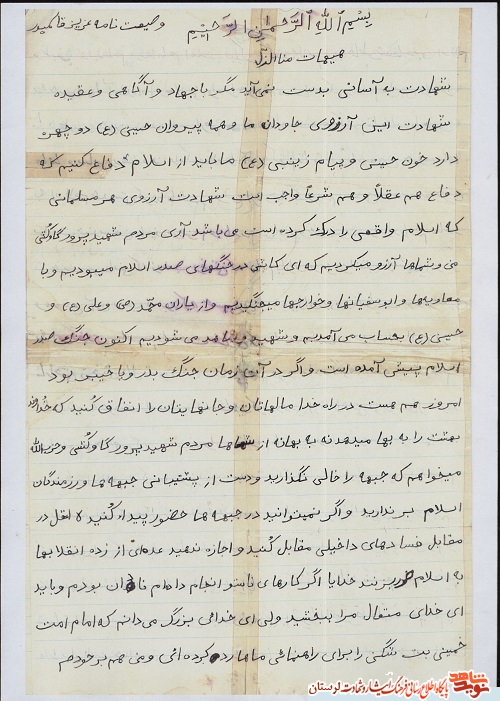 بِسْمِ ٱللّٰهِ ٱلرَّحْمٰنِ ٱلرَّحيٖمِ
وصیت نامه عزیز
هیهات مناالذله
شهادت به آسانی بدست نمی‌آید مگر با جهاد و آگاهی و عقیده
شهادت این آرزوی جاودان ما و همه پیروان حسینی (ع) دو چهره
دارد خون حسینی و پیام زینبی (ع) ما باید از اسلام دفاع کنیم که
دفاع هم عقلاً و هم شرعاً واجب است شهادت آرزوی هر مسلمانی
که اسلام واقعی را درک کرده است می‌باشد آری مردم شهید پرور
من و شماها آرزو میکردیم که ای کاش در جنگهای صدر اسلام میبودیم و با
معاویه‌ها و ابوسفیانها و خوارجها میجنگیدیم و از یاران محمّد (ص) و علی (ع) و
حسین (ع) بحساب می‌آمدیم و شهید و شاهد می‌شودیم اکنون جنگ صدر
اسلام پیش آمده است و اگر در آن زمان جنگ بدر و یا خیبر بود
امروز هم هست در راه خدا مالهاتان و جانهایتان را انفاق کُنید که خُداوند
بهشت را به بها میدهد نه به بهانه از شماها مردم شهید پرور و حزب‌الله
میخواهم که جبهه را خالی نگذارید و دست از پشتیبانی جبهه‌ها و رزمندگان
اسلام برندارید و اگر نمیتوانید در جبهه‌ها حضور پیدا کُنید لااقل در
مقابل فسادهای داخیلی مقابل کُنید و اجازه ندهید عده‌ای از زده انقلابها
به اسلام ضربه بزنند خدایا اگر کارهای انجام دادام نادان بودم و باید
ای خدای متعال مرا ببخشید ولی ای خدا من بزرگ می‌دانم که امام امت
خمینی بت شکن را برای راهنمائی ماها کرده‌ائی و من هم بر خودم
نوید شاهد
پایگاه اطلاع رسانی فرهنگ ایثار و شهادت لرستان